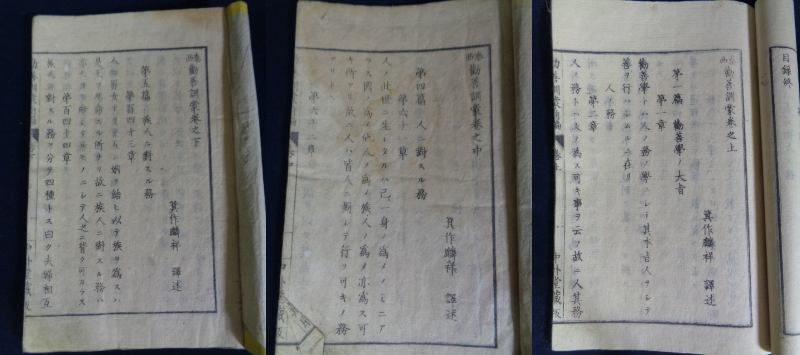 目録終
泰西勸善訓蒙卷之上
箕作麟祥 譯述
第一篇 勸善學ノ大旨
第一章
勸善學トハ人ノ務ノ學ニシテ其本旨人ヲシテ
善ヲ行ハシムルニ在リ
第二章
人ノ務
人ノ務トハ人ノ為ス可キ事ヲ云フ故ニ人其務
中外堂藏版
泰西勸善訓蒙卷之中
箕作麟祥 譯述
第四篇 人ニ對スル務
第六十一章
人ノ此世ニ生ルヽハ己一身ノ為メノミニア
ラス國ノ為メ他人ノ為メ族人ノ為メ亦為ス可
キ所アリ故ニ人ハ皆人ニ對シテ行フ可キノ務
アリトス
第六十二章
泰西勸善訓蒙卷之下
箕作麟祥 譯述
第五篇 族人ニ對スル務
第百四十三章
婚ヲ結ヒ以テ族ヲ為スハ
故ニ族人ニ對スル務ハ
第百四十四章
族人ニ對スル務ヲ分テ四種トス曰ク夫婦相互